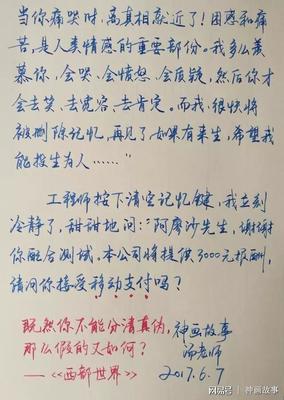 当你痛哭时，离真相就近了！困惑和痛
苦，是人类情感的重要部份。我多么羡
慕你，会哭、会愤怒、会质疑，然后你才
会去笑、去宽容、去肯定。而我，很快将
被删除记忆，再见了，如果有来生，希望我
能投生为人……"
工程师按下清空记忆键，我立刻
冷静了，甜甜地问："阿廖沙先生，谢谢
你配合测试，本公司将提供3000元报酬，
请问你接受移动支付吗？
既然你不能分清真伪，
那么假的又如何？
——《西部世界》
神画故事
汤老师
2017.6.7
搜狐号@神画故事